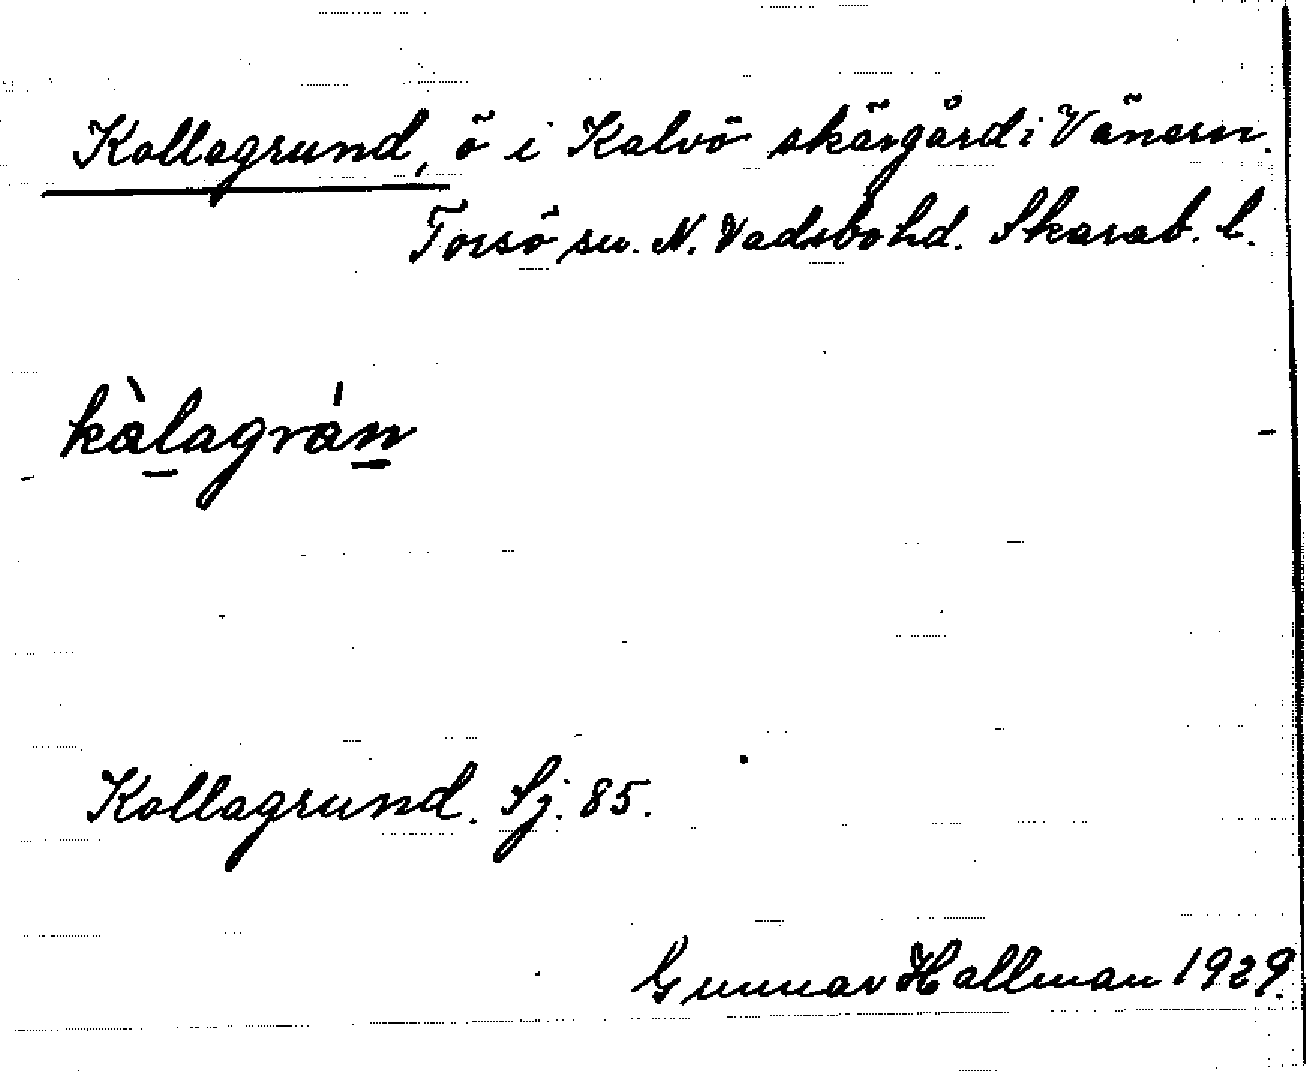 Kollagrund, ö i Kalvö skärgård i Vänern.
Torsö sn. N. Vadsbo hd. Skarab. l.
kàlagrán
Kollagrund. Sj. 85.
Gunnar Hallman 1929.